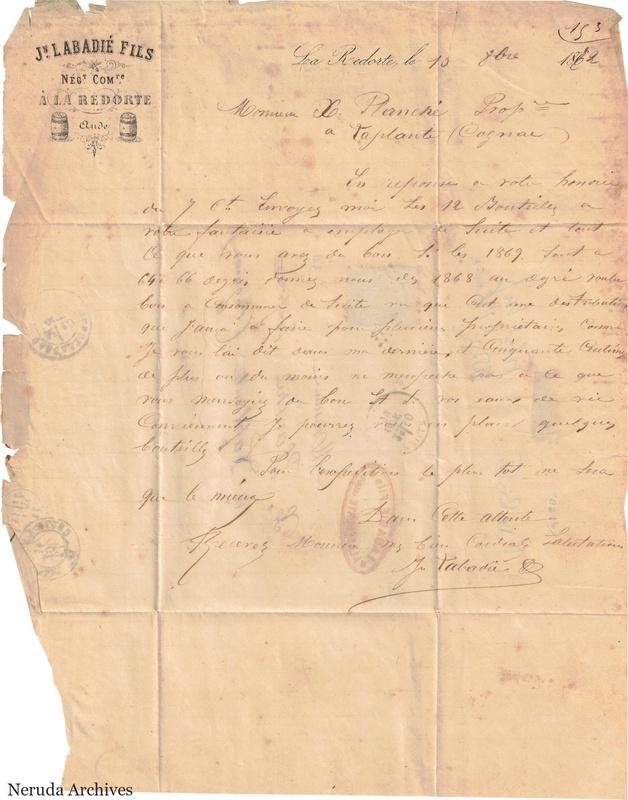 Jn LABADIÉ FILS
Négt Comre
À LA REDORTE
Aude
153
La Redorte, le 10 8bre 18
Monsieur X. Planché Propre
a Laplante (Cognac)
En reponse a votre honorée
du 7 Ct Envoyez moi les 12 Bouteilles a
votre fantaisie a employer de Suite et tout
Ce que vous avez de bon Si les 1869 Sont a
64 a 66 degrés donnez nous des 1868 au degré voulu
bon a Consommer de Suite vu que C'est une distribution
que J'aurai a faire pour plusieurs propriétaires Comme
Je vous l'ai dit dans ma dernière, et Cinquante Centimes
de plus ou du moins ne m'empeche pas a Ce que
vous m'envoyiez du bon et Si vos eaux de vie
Conviennent Je pourrez vous en placer quelques
bouteilles
Pour l'expedition le plus tot ne Sera
que le mieux
Dans Cette attente
Recevez Monsieur mes bien Cordiales Salutations
Jn Labadié
Neruda Archives